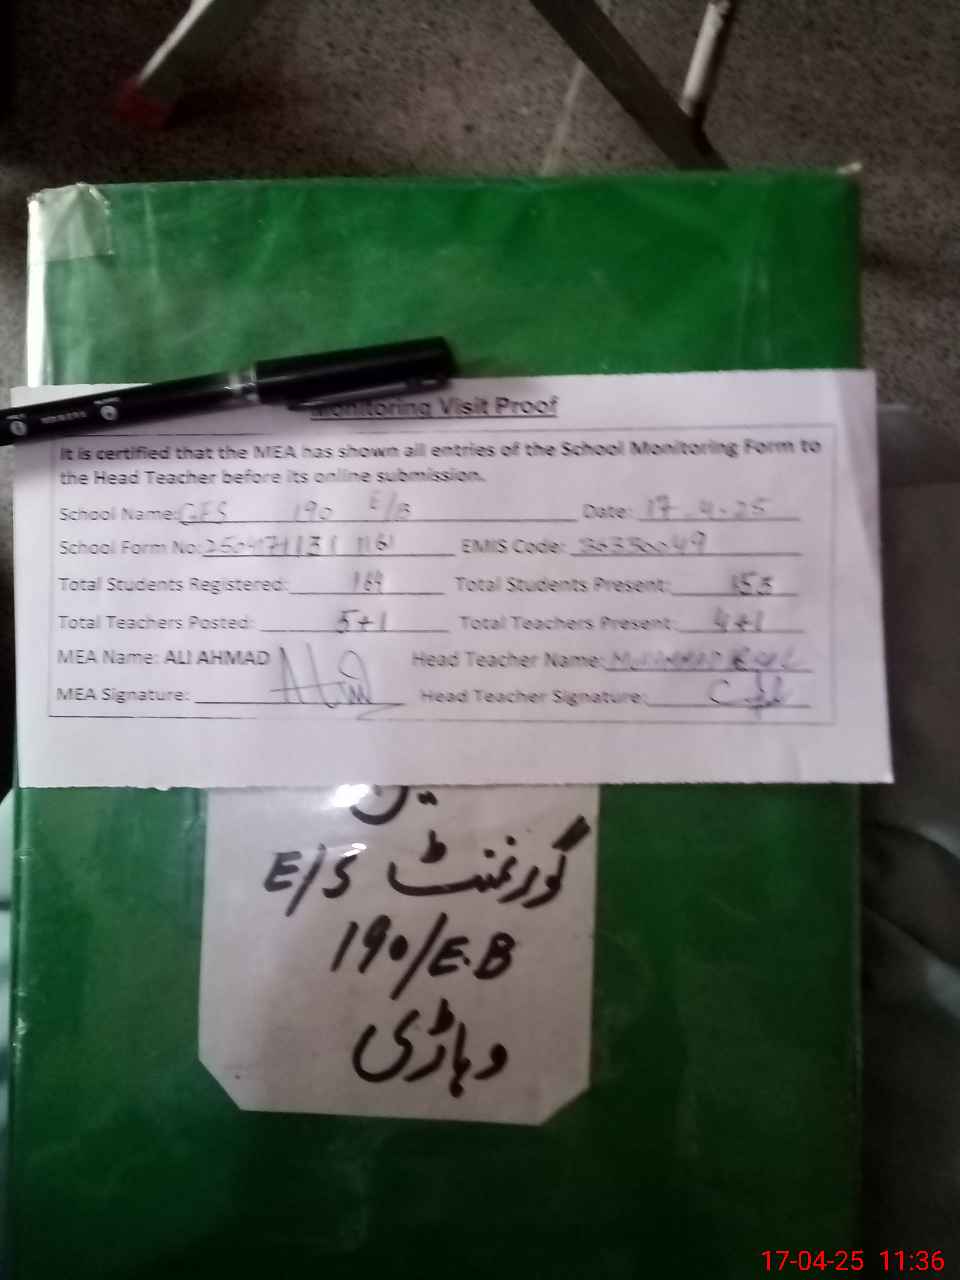 Monitoring Visit Proof
It is certified that the MEA has shown all entries of the School Monitoring Form to
the Head Teacher before its online submission.
School Name: GES 190 E/B Date: 17-4-25
School Form No: EMIS Code:
Total Students Registered: 169 Total Students Present: 153
Total Teachers Posted: 5+1 Total Teachers Present: 4+1
MEA Name: ALI AHMAD Head Teacher Name: MUHAMMAD
MEA Signature: Head Teacher Signature:
گورنمنٹ E/S
190/E.B
وہاڑی
17-04-25 11:36